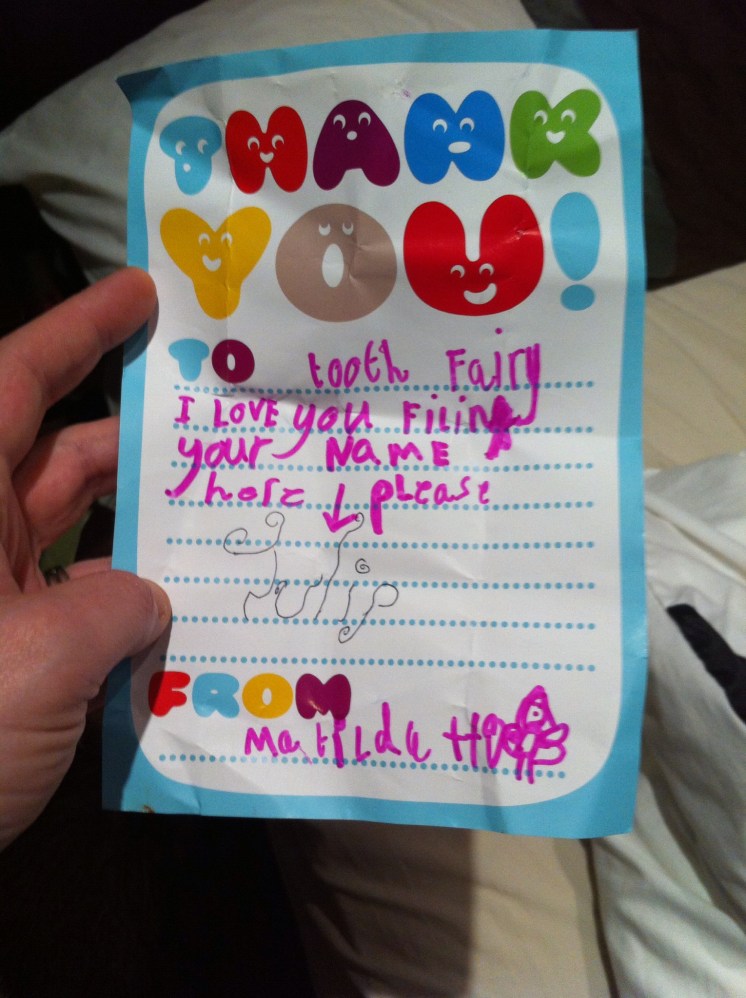 THANK
YOU!
TO tooth Fairy
I LOVE you Filing
your NAME
here please
Tulip
FROM
Matilda